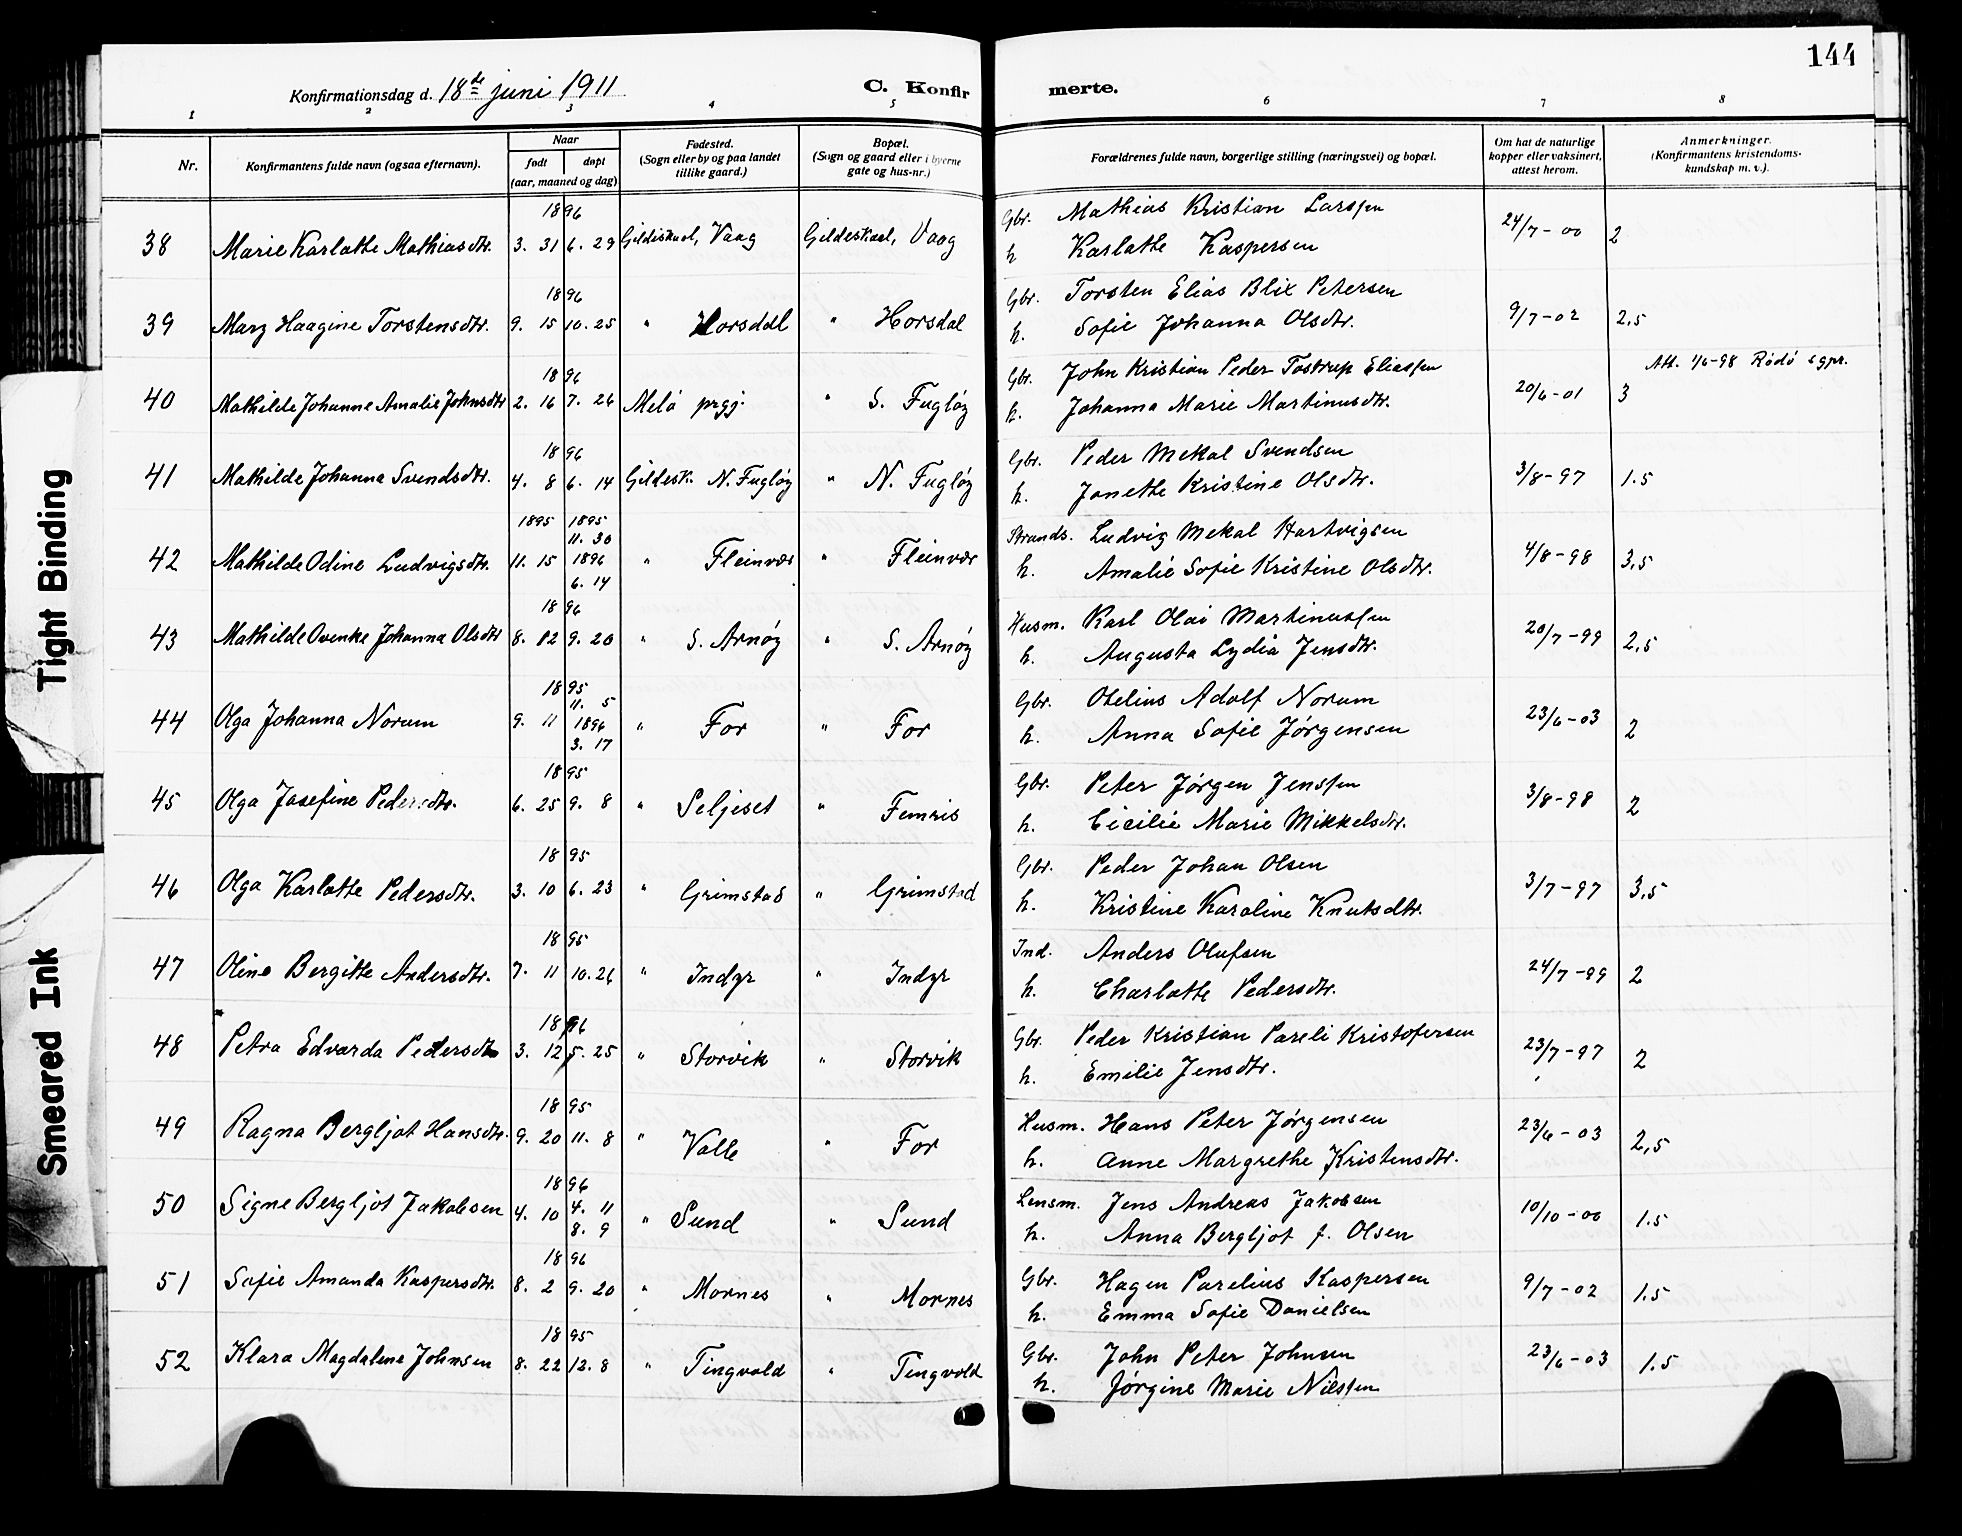 144
Konfirmationsdag d. 18de juni 1911
C. Konfir merte.
1 2 3 4 5 6 7 8
Nr. Konfirmantens fulde navn (ogsaa efternavn). Naar født døpt (aar, maaned og dag) Fødested. (Sogn eller by og paa landet tillike gaard.) Bopæl. (Sogn og gaard eller i byerne gate og hus-nr.) Forældrenes fulde navn, borgerlige stilling (næringsvei) og bopæl. Om hat de naturlige kopper eller vaksinert, attest herom. Anmerkninger. (Konfirmantens kristendoms-kundskap m. v.).
1896 Gbr. Mathias Kristian Larssen
38 Marie Karlotte Mathiasdtr. 3. 31 6. 29 Gildeskaal, Vaag Gildeskaal, Vaag h. Karlotte Kaspersen 24/7-00 2
1896 Gbr. Torsten Elias Blix Petersen
39 Mary Haagine Torstensdtr. 9. 15 10. 25 " Horsdal " Horsdal h. Sofie Johanna Olsdtr. 9/7-02 2,5
1896 Gbr. John Kristian Peder Tostrup Eliassen Att. 1/6-98 Rødø sgpr.
40 Mathilde Johanne Amalie Johnsdtr 2. 16 7. 26 Melø prgj. " S. Fugløy h. Johanna Marie Martinusdtr. 20/6-01 3
1896 Gbr. Peder Mekal Svendsen
41 Mathilde Johanna Svendsdtr. 4. 8 6. 14 Gildesk. N. Fugløy " N. Fugløy h. Janette Kristine Olsdtr. 3/8-97 1.5
1895 1895 11. 30 Strands. Ludvig Mekal Hartvigsen
42 Mathilde Odine Ludvigsdtr. 11. 15 1896 6. 14 " Fleinvær " Fleinvær h. Amalie Sofie Kristine Olsdtr. 4/8-98 3,5
1896 Husm. Karl Olai Martinussen
43 Mathilde Ovenke Johanna Olsdtr 8. 12 9. 20 " S. Arnøy " S. Arnøy h. Augusta Lydia Jensdtr. 20/7-99 2,5
1895 11. 5 Gbr. Otelius Adolf Norum
44 Olga Johanna Norum 9. 11 1896 3. 17 " For " For h. Anna Sofie Jørgensen 23/6-03 2
1895 Gbr. Peter Jørgen Jenssen
45 Olga Josefine Pedersdtr. 6. 25 9. 8 " Seljeset " Femris h. Cicilie Marie Mikkelsdtr. 3/8-98 2
1895 Gbr. Peder Johan Olsen
46 Olga Karlotte Pedersdtr. 3. 10 6. 23 " Grimstad " Grimstad h. Kristine Karoline Knutsdtr. 3/7-97 3,5
1895 Ind. Anders Olufsen
47 Oline Bergitte Andersdtr. 7. 11 10. 26 " Indyr " Indyr h. Charlotte Pedersdtr. 24/7-99 2
1896 Gbr. Peder Kristian Pareli Kristofersen
48 Petra Edvarda Pedersdtr 3. 12 5. 25 " Storvik " Storvik h. Emilie Jensdtr. 23/7-97 2
1895 Husm. Hans Peter Jørgensen
49 Ragna Bergljot Hansdtr. 9. 20 11. 8 " Valle " For h. Anne Margrethe Kristensdtr. 23/6-03 2,5
1896 4. 11 Lensm. Jens Andreas Jakobsen
50 Signe Bergljot Jakobsen 4. 10 8. 9 " Sund " Sund h. Anna Bergljot f. Olsen 10/10-00 1.5
1896 Gbr. Hagen Parelius Kaspersen
51 Sofie Amanda Kaspersdtr. 8. 2 9. 20 " Mornes " Mornes h. Emma Sofie Danielsen 9/7-02 1.5
1895 Gbr. John Peter Johnsen
52 Klara Magdalene Johnsen 8. 22 12. 8 " Tingvold " Tingvold h. Jørgine Marie Nilssen 23/6-03 1.5
Tight Binding
Smeared Ink